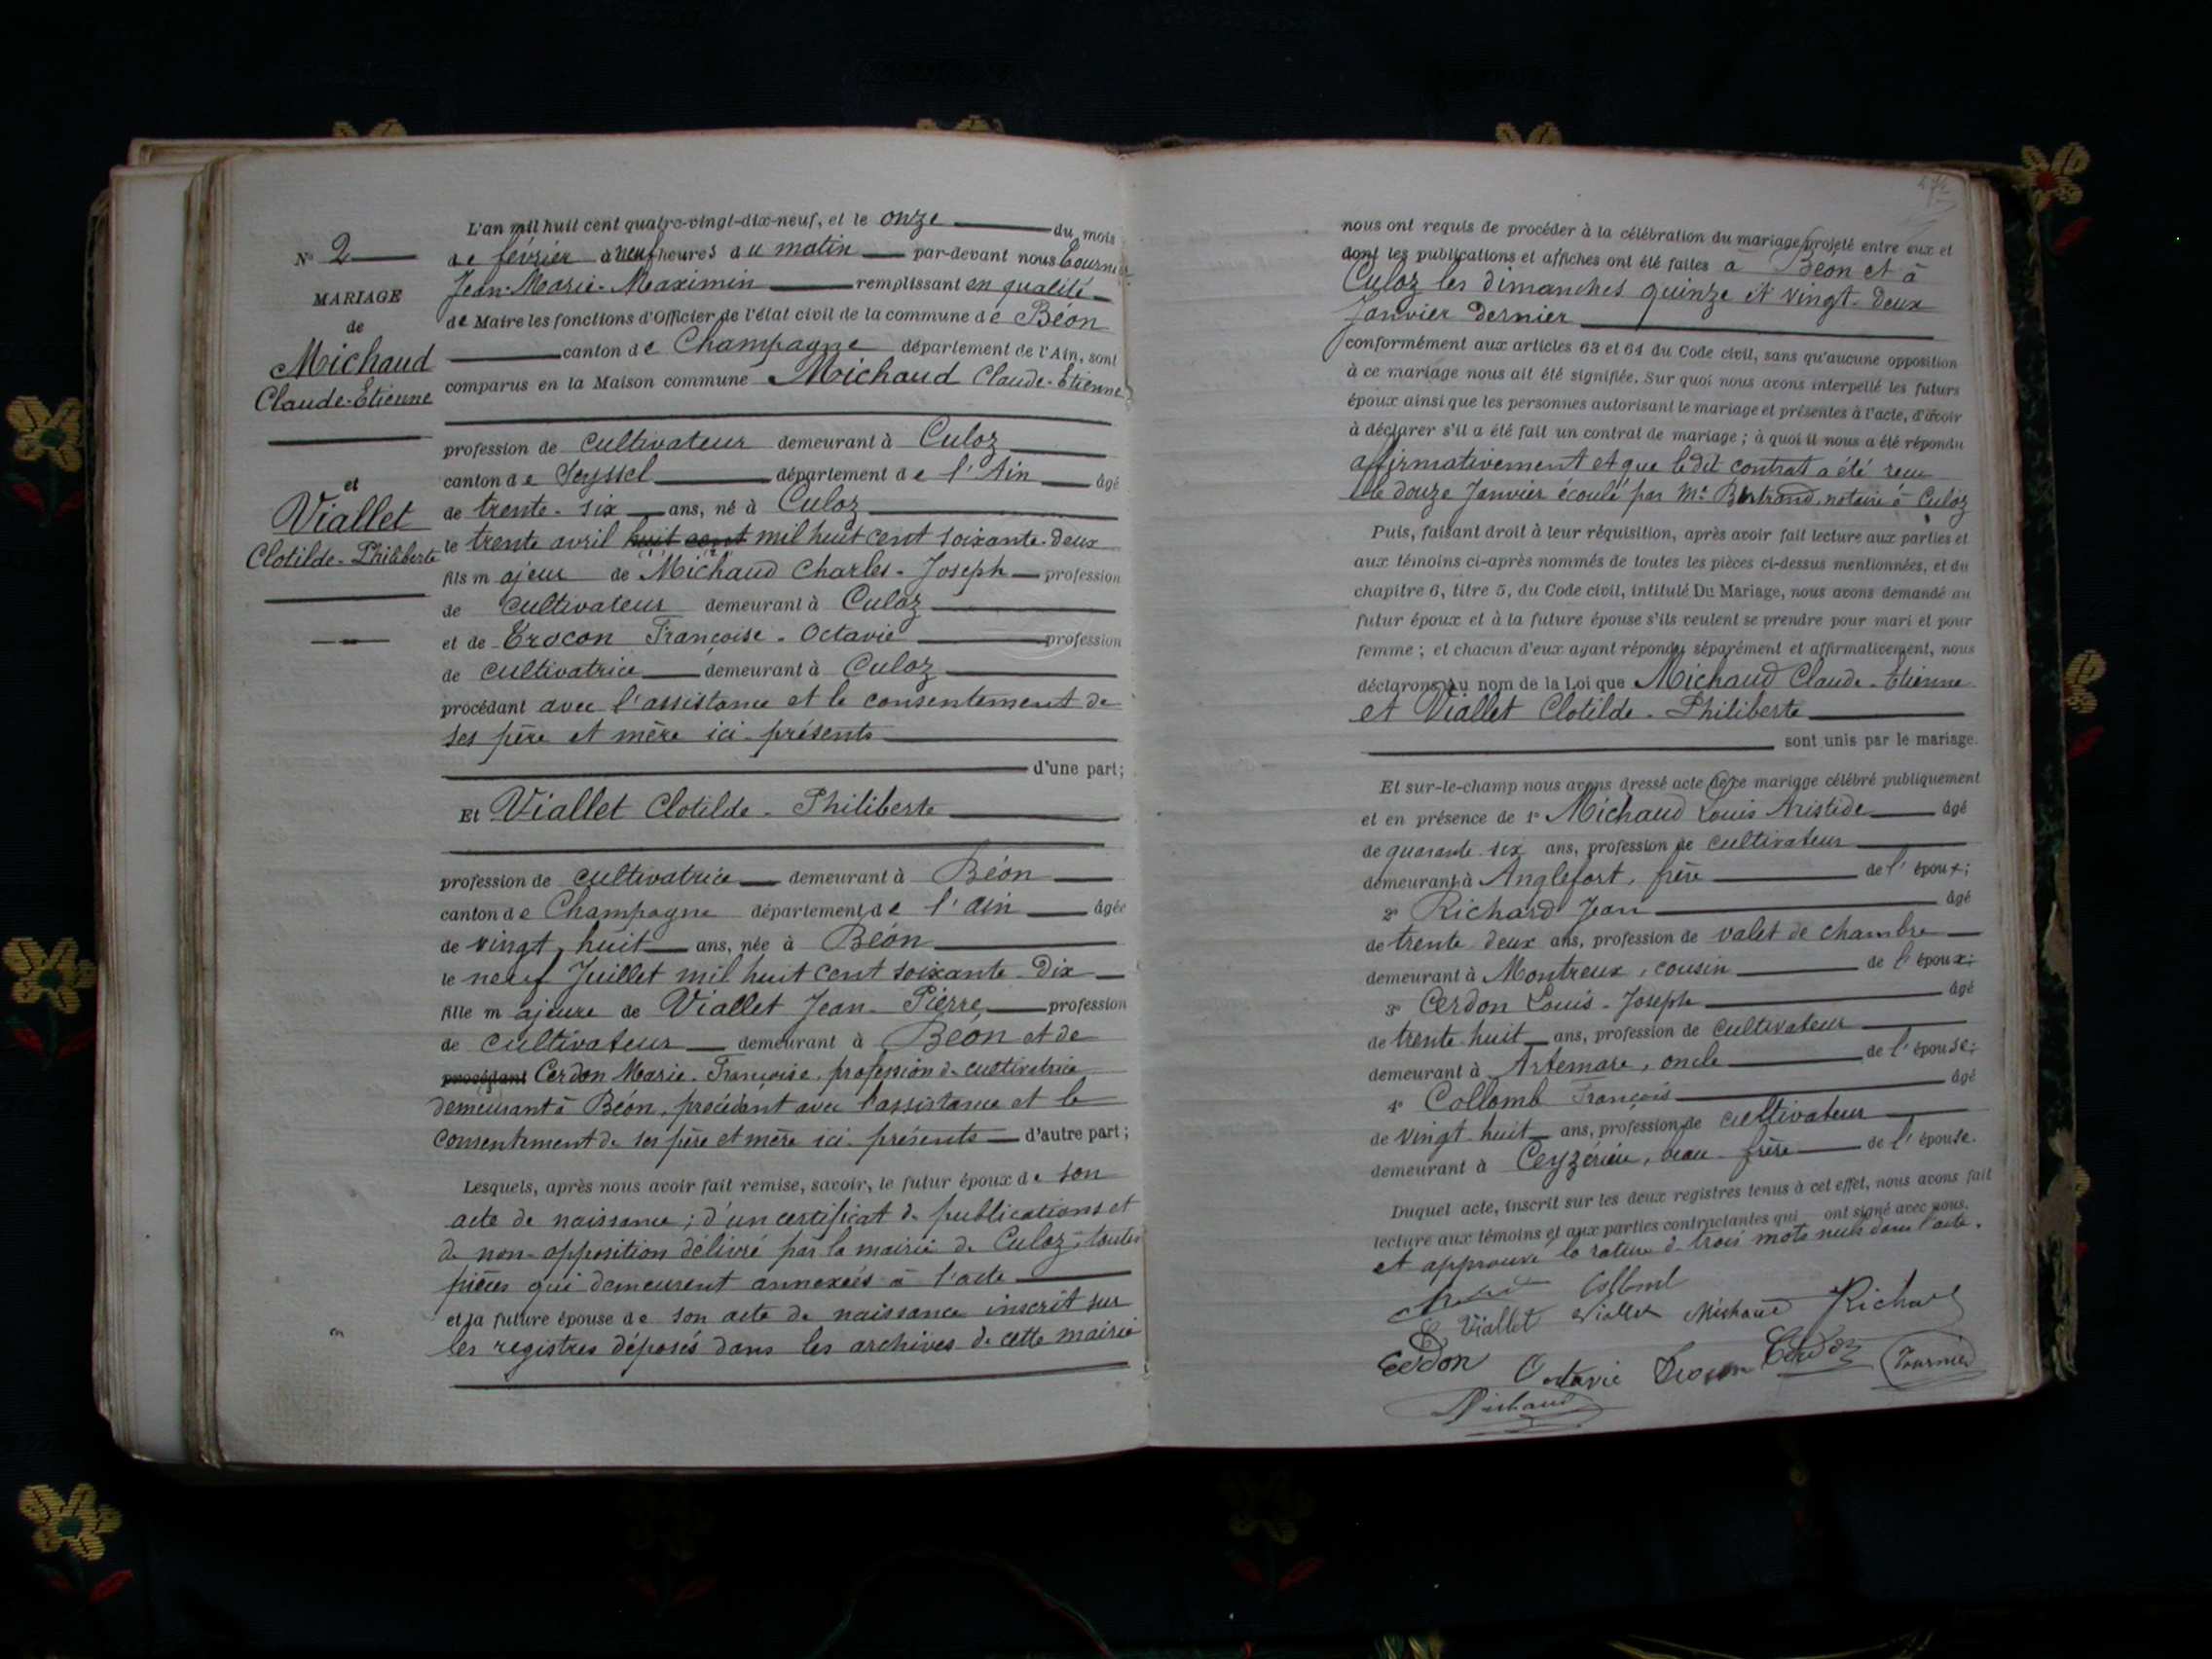 N° 2
MARIAGE
de
Michaud
Claude-Etienne
et
Viallet
Clotilde-Philiberte
L'an mil huit cent quatre-vingt-dix-neuf, et le onze du mois
de février à neuf heures du matin par-devant nous
Jean-Marie-Maximin remplissant en qualité
de Maire les fonctions d'Officier de l'état civil de la commune de Béon
canton de Champagne département de l'Ain, sont
comparus en la Maison commune Michaud Claude-Etienne
profession de cultivateur demeurant à Culoz
canton de Seyssel département de l'Ain âgé
de trente-six ans, né à Culoz
le trente avril huit cent mil huit cent soixante-deux
fils majeur de Michaud Charles-Joseph profession
de cultivateur demeurant à Culoz
et de Trocon Françoise-Octavie profession
de cultivatrice demeurant à Culoz
procédant avec l'assistance et le consentement de
ses père et mère ici-présents
d'une part;
Et Viallet Clotilde-Philiberte
profession de cultivatrice demeurant à Béon
canton de Champagne département de l'ain âgée
de vingt-huit ans, née à Béon
le neuf Juillet mil huit cent soixante-Dix
fille majeure de Viallet Jean-Pierre profession
de cultivateur demeurant à Béon et de
procédant Cerdon Marie-Françoise, profession de cultivatrice
demeurant à Béon, procédant avec l'assistance et le
consentement de ses père et mère ici-présents d'autre part;
Lesquels, après nous avoir fait remise, savoir, le futur époux de son
acte de naissance; d'un certificat de publications et
de non-opposition délivré par la mairie de Culoz, toutes
pièces qui demeurent annexées à l'acte
et la future épouse de son acte de naissance inscrit sur
les registres déposés dans les archives de cette mairie
nous ont requis de procéder à la célébration du mariage projeté entre eux et
dont les publications et affiches ont été faites à Béon et à
Culoz les dimanches quinze et vingt-deux
Janvier dernier
conformément aux articles 63 et 64 du Code civil, sans qu'aucune opposition
à ce mariage nous ait été signifiée. Sur quoi nous avons interpellé les futurs
époux ainsi que les personnes autorisant le mariage et présentes à l'acte, d'avoir
à déclarer s'il a été fait un contrat de mariage; à quoi il nous a été répondu
affirmativement et que ledit contrat a été reçu
le douze Janvier écoulé par Me Bertrand, notaire à Culoz
Puis, faisant droit à leur réquisition, après avoir fait lecture aux parties et
aux témoins ci-après nommés de toutes les pièces ci-dessus mentionnées, et du
chapitre 6, titre 5, du Code civil, intitulé Du Mariage, nous avons demandé au
futur époux et à la future épouse s'ils veulent se prendre pour mari et pour
femme; et chacun d'eux ayant répondu séparément et affirmativement, nous
déclarons au nom de la Loi que Michaud Claude-Etienne
et Viallet Clotilde-Philiberte
sont unis par le mariage.
Et sur-le-champ nous avons dressé acte de ce mariage célébré publiquement
et en présence de 1° Michaud Louis Aristide âgé
de quarante-six ans, profession de cultivateur
demeurant à Anglefort, frère de l'époux;
2° Richard Jean âgé
de trente-deux ans, profession de valet de chambre
demeurant à Montreux, cousin de l'époux;
3° Cerdon Louis-Joseph âgé
de trente-huit ans, profession de cultivateur
demeurant à Artemare, oncle de l'épouse;
4° Collomb François âgé
de vingt-huit ans, profession de cultivateur
demeurant à Ceyzérieu, beau-frère de l'épouse.
Duquel acte, inscrit sur les deux registres tenus à cet effet, nous avons fait
lecture aux témoins et aux parties contractantes qui ont signé avec nous.
et approuvé la rature de trois mots nuls dans l'acte.
Collomb
C. Viallet Viallet Michaud Richard
Cerdon Octavie Trocon Cerdon Tournier
Michaud